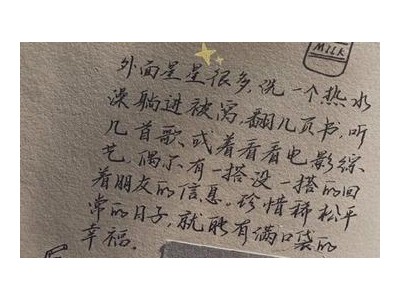 MILK
外面星星很多,洗一个热水
澡躺进被窝,翻几页书,听
几首歌,或着看看电影综
艺,偶尔有一搭没一搭的回
着朋友的信息。珍惜稀松平
常的日子,就能有满口袋的
幸福。